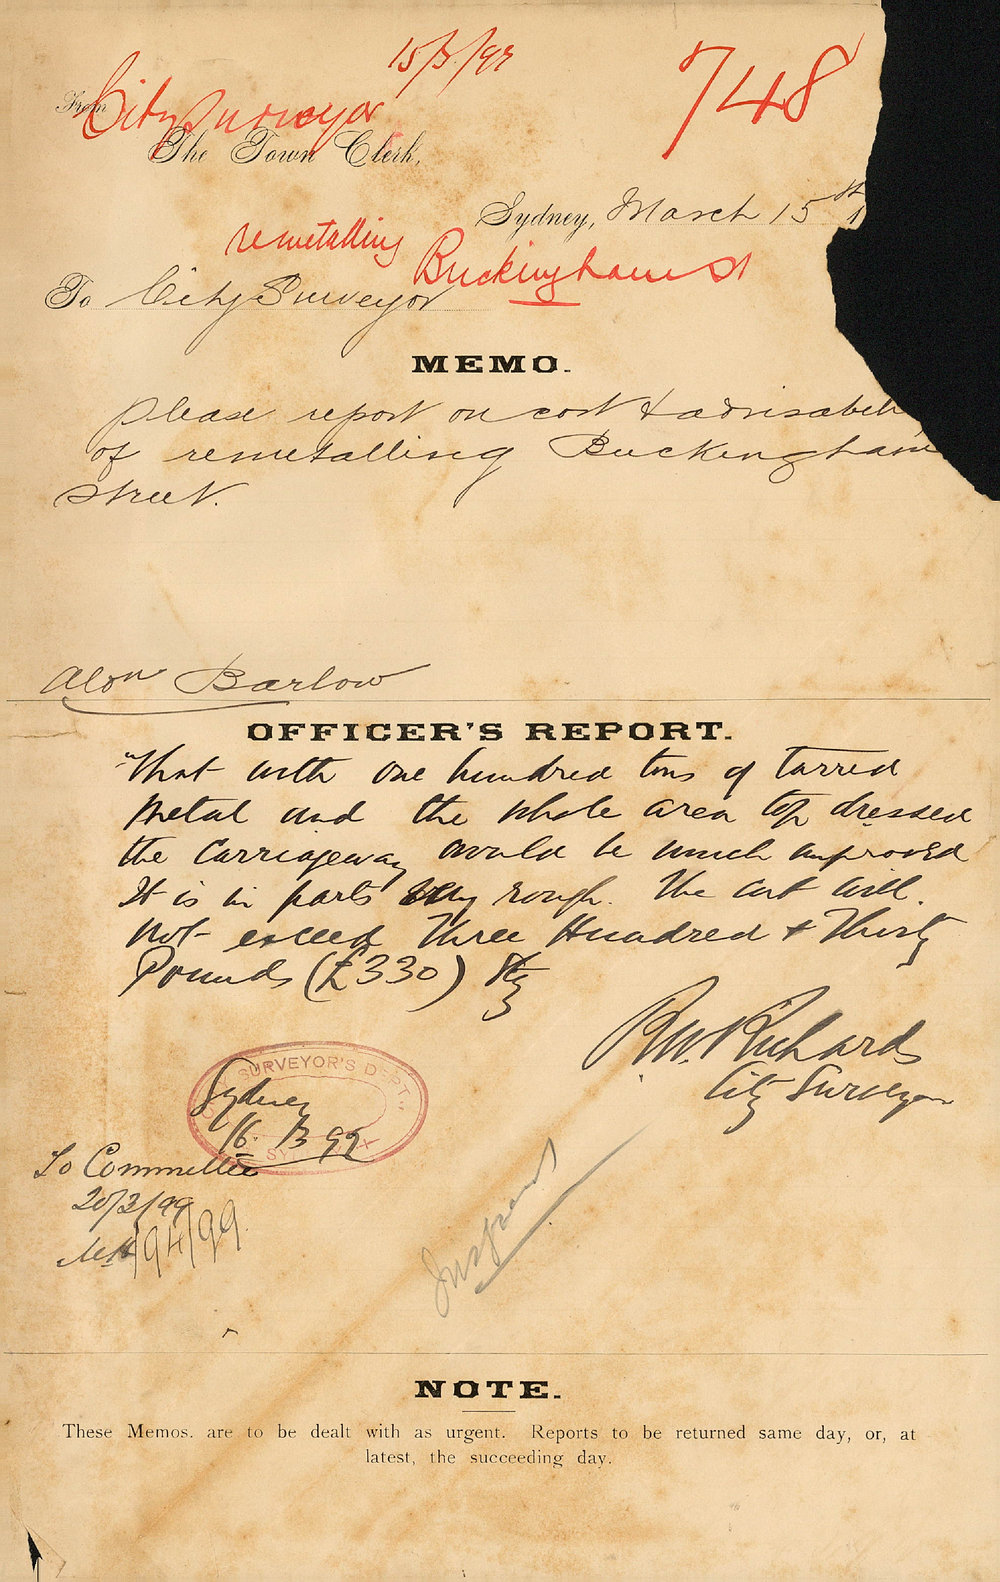 15/3/99
748
From
City Surveyor
The Town Clerk,
Sydney, March 15th 1
remetalling
Buckingham St
To City Surveyor
MEMO.
Please report on cost & advisabili
of remetalling Buckingham
street.
Aldn Barlow
OFFICER'S REPORT.
"That with one hundred tons of tarred
metal and the whole area top dressed
the carriageway would be much improved
It is in parts very rough. The cost will
not exceed Three Hundred & Thirty
Pounds (£330) Stg
R.W. Richards
City Surveyor
SURVEYOR'S DEPT.
SY
Sydney
16.3.99
To Committee
20/3/99
194/99
NOTE.
These Memos. are to be dealt with as urgent. Reports to be returned same day, or, at
latest, the succeeding day.